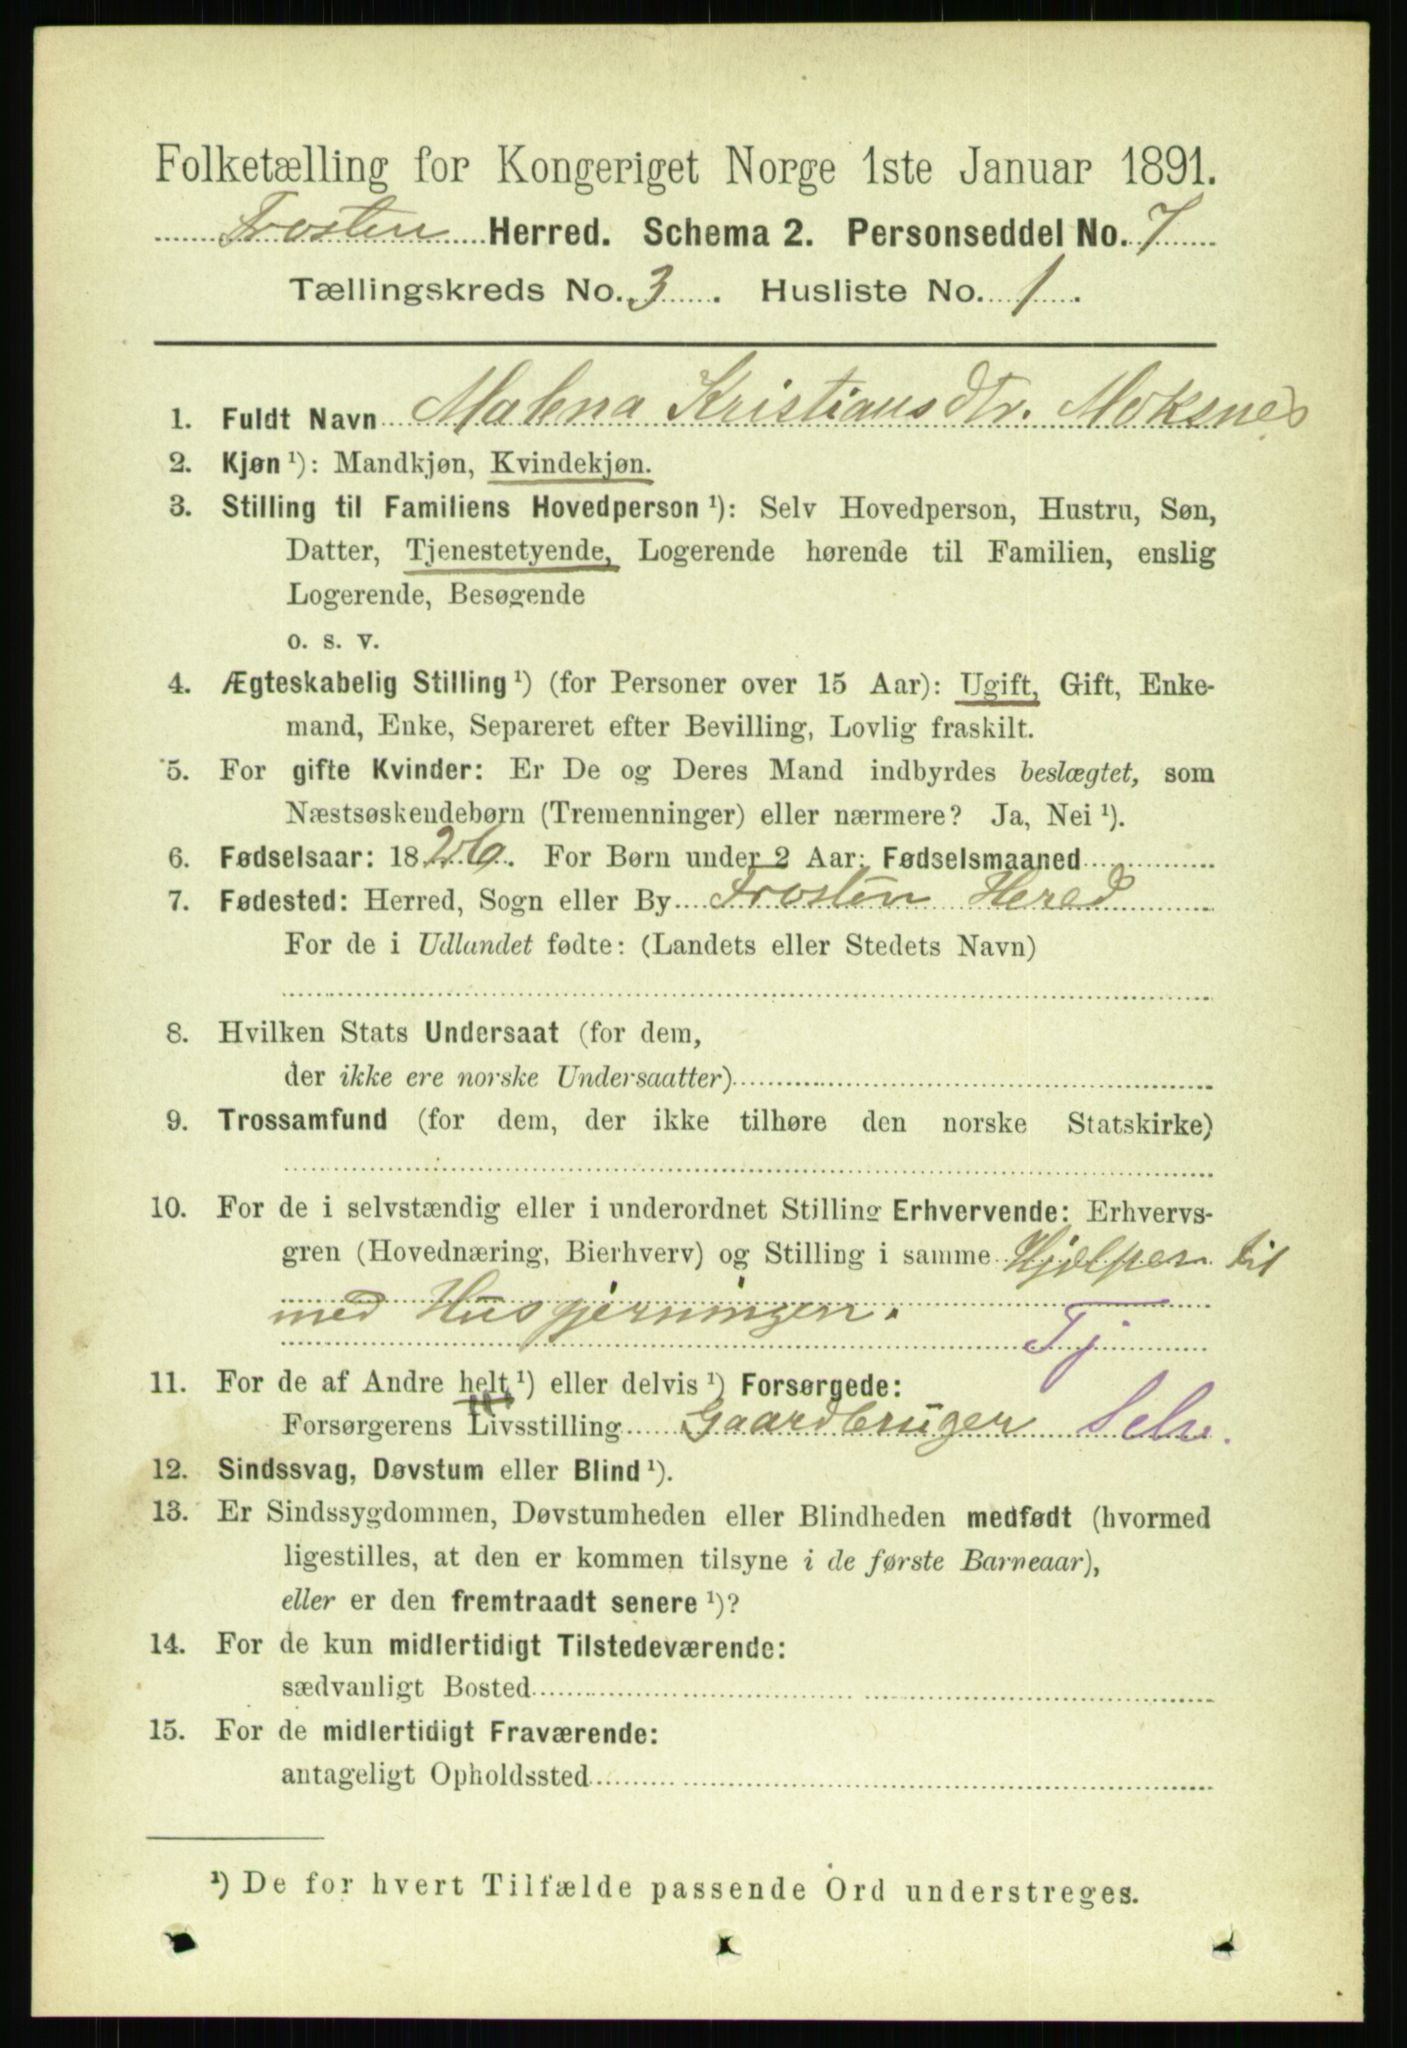 Folketælling for Kongeriget Norge 1ste Januar 1891.
Frosten Herred. Schema 2. Personseddel No. 7
Tællingskreds No. 3. Husliste No. 1.
1. Fuldt Navn Malena Kristiansdtr. Moksnes
2. Kjøn ¹): Mandkjøn, Kvindekjøn.
3. Stilling til Familiens Hovedperson ¹): Selv Hovedperson, Hustru, Søn,
Datter, Tjenestetyende, Logerende hørende til Familien, enslig
Logerende, Besøgende
o. s. v.
4. Ægteskabelig Stilling ¹) (for Personer over 15 Aar): Ugift, Gift, Enke-
mand, Enke, Separeret efter Bevilling, Lovlig fraskilt.
5. For gifte Kvinder: Er De og Deres Mand indbyrdes beslægtet, som
Næstsøskendebørn (Tremenninger) eller nærmere? Ja, Nei ¹).
6. Fødselsaar: 1826. For Børn under 2 Aar: Fødselsmaaned
7. Fødested: Herred, Sogn eller By Frosten Hered
For de i Udlandet fødte: (Landets eller Stedets Navn)
8. Hvilken Stats Undersaat (for dem,
der ikke ere norske Undersaatter)
9. Trossamfund (for dem, der ikke tilhøre den norske Statskirke)
10. For de i selvstændig eller i underordnet Stilling Erhvervende: Erhvervs-
gren (Hovednæring, Bierhverv) og Stilling i samme Hjelper til
med Husgjerningen.
Tj
11. For de af Andre helt ¹) eller delvis ¹) Forsørgede:
Forsørgerens Livsstilling Gaardbruger Selv.
12. Sindssvag, Døvstum eller Blind ¹).
13. Er Sindssygdommen, Døvstumheden eller Blindheden medfødt (hvormed
ligestilles, at den er kommen tilsyne i de første Barneaar),
eller er den fremtraadt senere ¹)?
14. For de kun midlertidigt Tilstedeværende:
sædvanligt Bosted
15. For de midlertidigt Fraværende:
antageligt Opholdssted
¹) De for hvert Tilfælde passende Ord understreges.